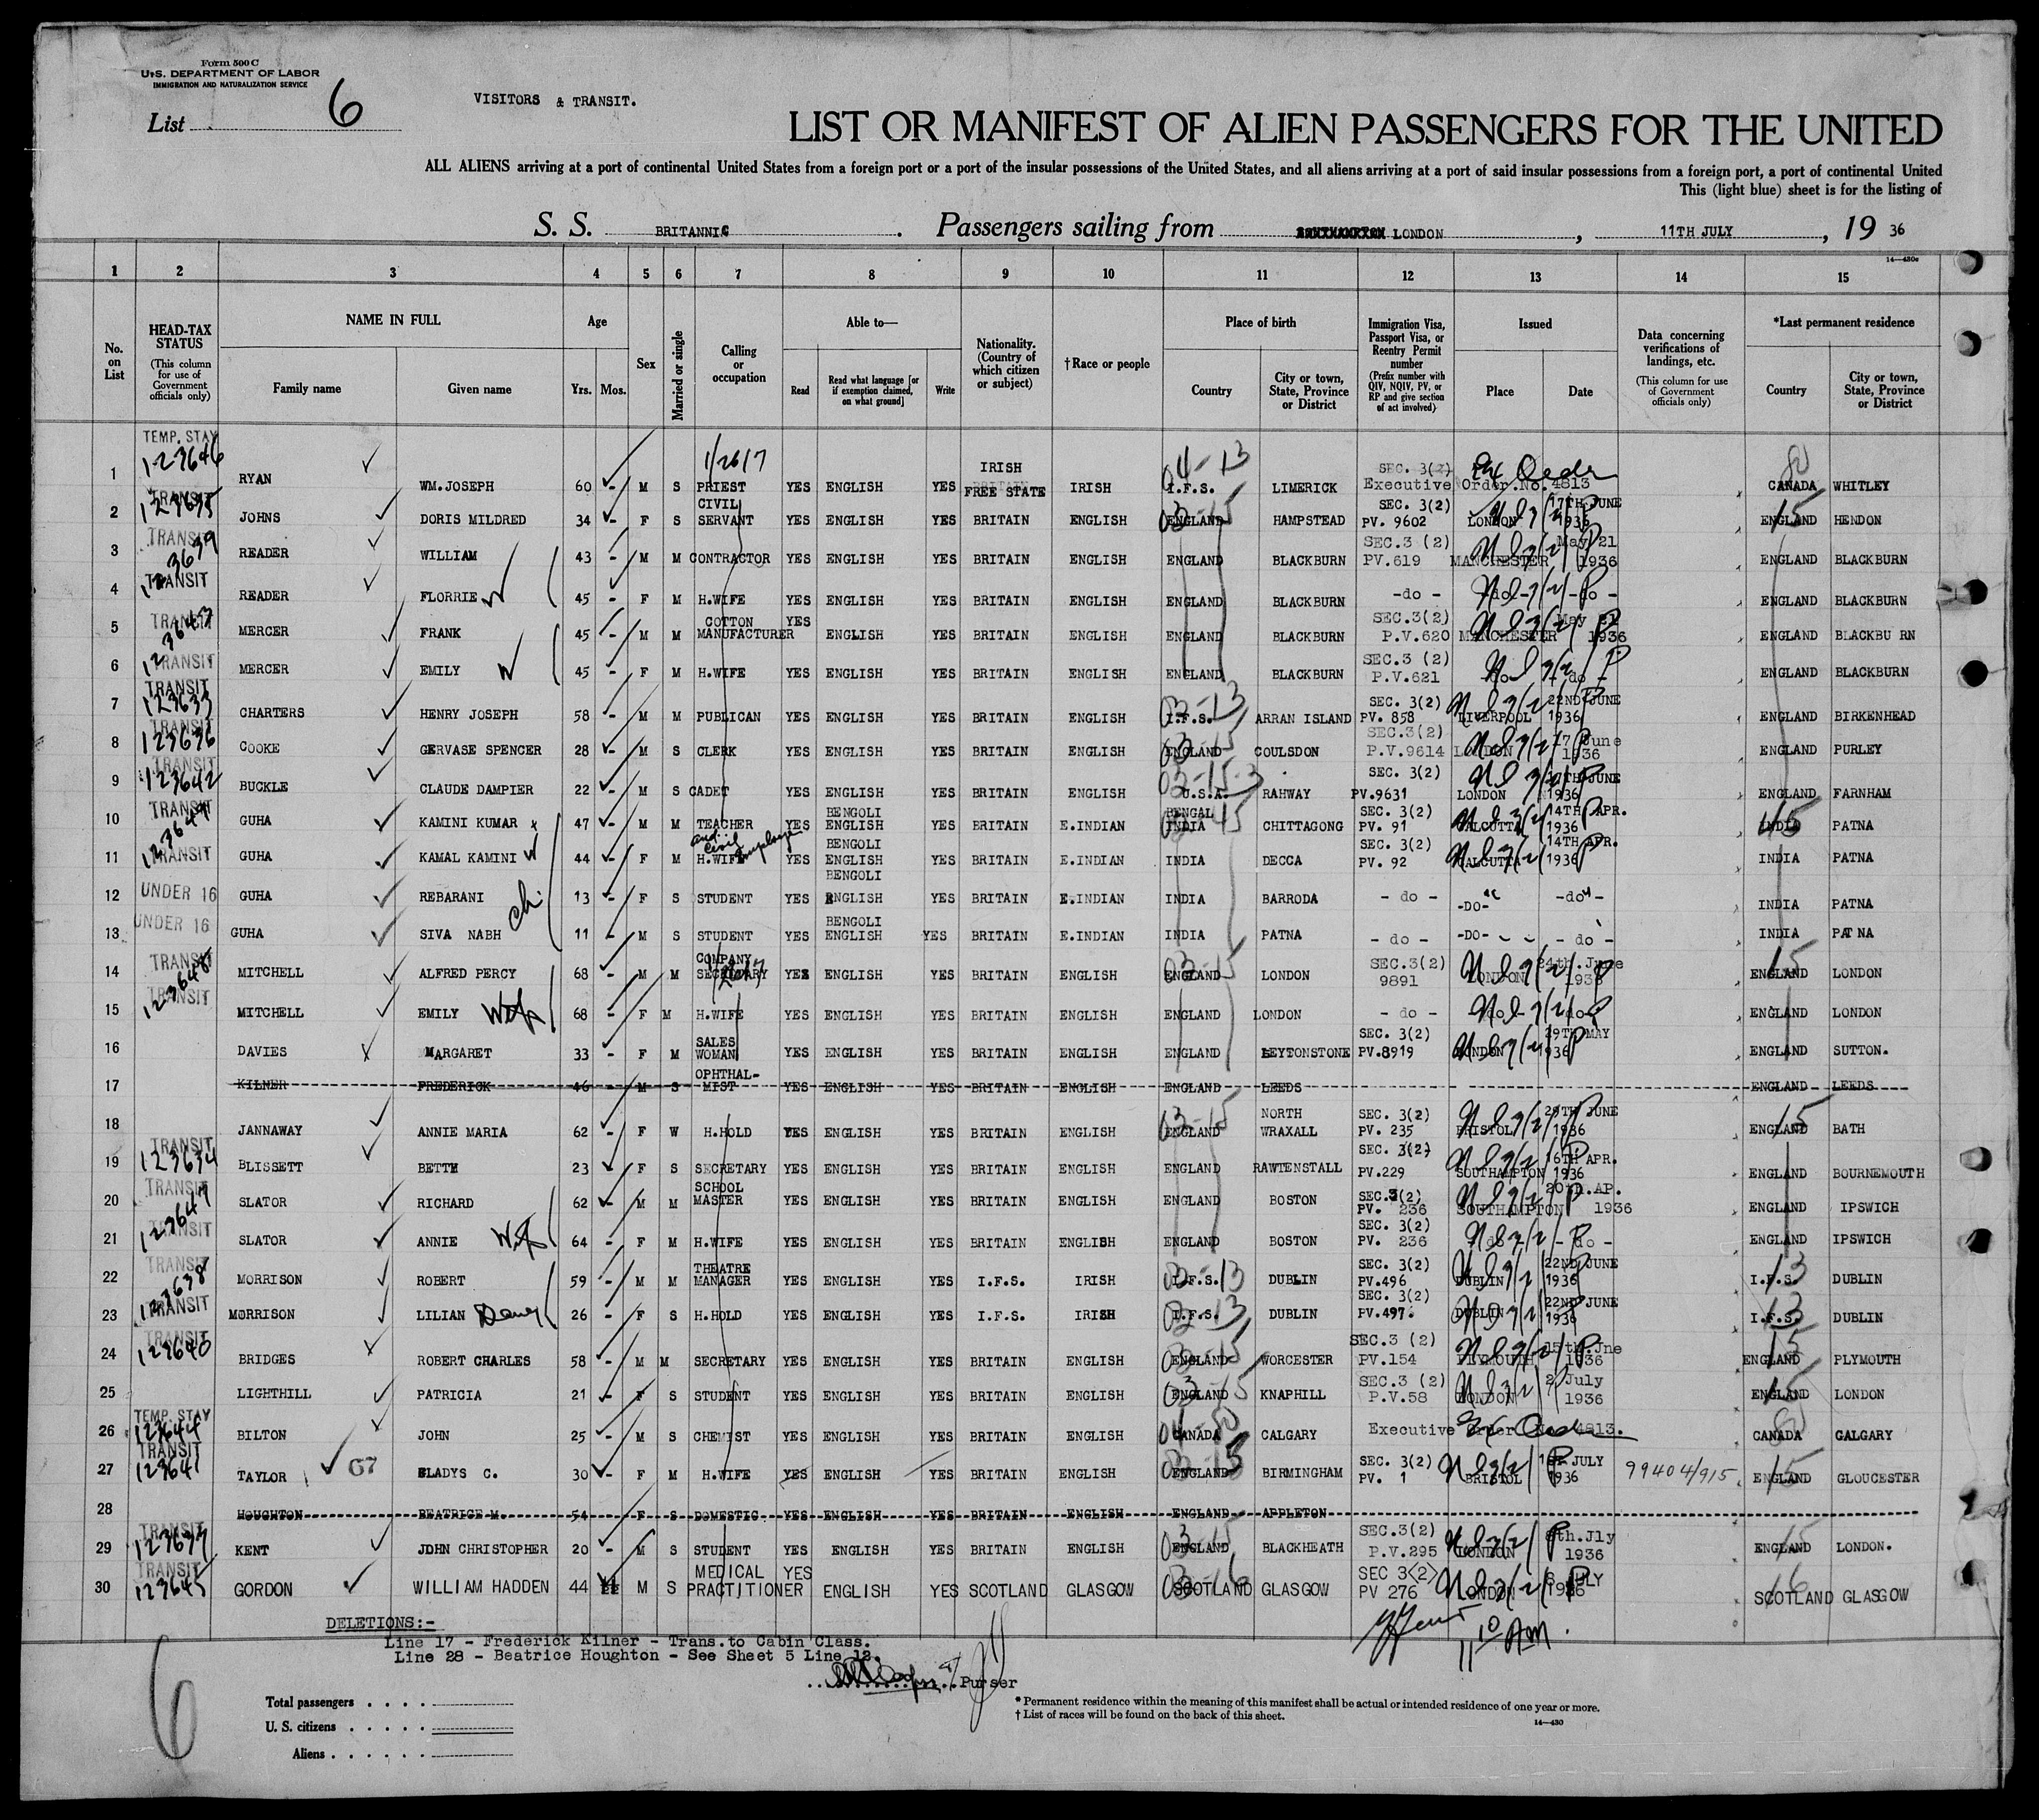 Form 500 C
U.S. DEPARTMENT OF LABOR
IMMIGRATION AND NATURALIZATION SERVICE
List 6
VISITORS & TRANSIT.
LIST OR MANIFEST OF ALIEN PASSENGERS FOR THE UNITED
ALL ALIENS arriving at a port of continental United States from a foreign port or a port of the insular possessions of the United States, and all aliens arriving at a port of said insular possessions from a foreign port, a port of continental United
This (light blue) sheet is for the listing of
S. S. BRITANNIC. Passengers sailing from LONDON, 11TH JULY, 19 36
14—430c
1 2 3 4 5 6 7 8 9 10 11 12 13 14 15
No. on List
HEAD-TAX STATUS (This column for use of Government officials only)
NAME IN FULL Family name Given name
Age Yrs. Mos.
Sex
Married or single
Calling or occupation
Able to— Read Read what language [or if exemption claimed, on what ground] Write
Nationality. (Country of which citizen or subject)
†Race or people
Place of birth Country City or town, State, Province or District
Immigration Visa, Passport Visa, or Reentry Permit number (Prefix number with QIV, NQIV, PV, or RP and give section of act involved)
Issued Place Date
Data concerning verifications of landings, etc. (This column for use of Government officials only)
*Last permanent residence Country City or town, State, Province or District
1 TEMP. STAY 123646 RYAN WM. JOSEPH 60 - M S 1/2617 PRIEST YES ENGLISH YES IRISH FREE STATE IRISH 04-13 I.F.S. LIMERICK SEC. 3(2) Executive Order.No.4813 Ex Order 80 CANADA WHITLEY
2 TRANSIT 123635 JOHNS DORIS MILDRED 34 - F S CIVIL SERVANT YES ENGLISH YES BRITAIN ENGLISH 03-15 ENGLAND HAMPSTEAD SEC. 3(2) PV. 9602 LONDON 17TH JUNE 1936 15 ENGLAND HENDON
3 TRANSIT 123639 READER WILLIAM 43 - M M CONTRACTOR YES ENGLISH YES BRITAIN ENGLISH ENGLAND BLACKBURN SEC.3 (2) PV.619 MANCHESTER May 21 1936 ENGLAND BLACKBURN
4 TRANSIT READER FLORRIE W 45 - F M H.WIFE YES ENGLISH YES BRITAIN ENGLISH ENGLAND BLACKBURN -do - -do- -do - ENGLAND BLACKBURN
5 TRANSIT 123643 MERCER FRANK 45 - M M COTTON MANUFACTURER YES ENGLISH YES BRITAIN ENGLISH ENGLAND BLACKBURN SEC.3(2) P.V.620 MANCHESTER May 21 1936 ENGLAND BLACKBU RN
6 TRANSIT MERCER EMILY W 45 - F M H.WIFE YES ENGLISH YES BRITAIN ENGLISH ENGLAND BLACKBURN SEC.3 (2) P.V.621 do - do - ENGLAND BLACKBURN
7 TRANSIT 123633 CHARTERS HENRY JOSEPH 58 - M M PUBLICAN YES ENGLISH YES BRITAIN ENGLISH 03-13 I.F.S. ARRAN ISLAND SEC. 3(2) PV. 858 LIVERPOOL 22ND JUNE 1936 ENGLAND BIRKENHEAD
8 TRANSIT 123636 COOKE GERVASE SPENCER 28 - M S CLERK YES ENGLISH YES BRITAIN ENGLISH 03-15 ENGLAND COULSDON SEC.3(2) P.V.9614 LONDON 17 June 1936 ENGLAND PURLEY
9 TRANSIT 123642 BUCKLE CLAUDE DAMPIER 22 - M S CADET YES ENGLISH YES BRITAIN ENGLISH 03-15-3 U.S.A. RAHWAY SEC. 3(2) PV.9631 LONDON JUNE 1936 ENGLAND FARNHAM
10 TRANSIT 123649 GUHA KAMINI KUMAR 47 - M M TEACHER and Civil Employee YES BENGOLI ENGLISH YES BRITAIN E.INDIAN BENGAL INDIA CHITTAGONG SEC. 3(2) PV. 91 CALCUTTA 14TH APR. 1936 INDIA PATNA
11 TRANSIT GUHA KAMAL KAMINI W 44 - F M H.WIFE YES BENGOLI ENGLISH YES BRITAIN E.INDIAN INDIA DECCA SEC. 3(2) PV. 92 CALCUTTA 14TH APR. 1936 INDIA PATNA
12 UNDER 16 GUHA REBARANI 13 - F S STUDENT YES BENGOLI ENGLISH YES BRITAIN E.INDIAN INDIA BARRODA - do - -DO- -do- INDIA PATNA
13 UNDER 16 GUHA SIVA NABH ch 11 - M S STUDENT YES BENGOLI ENGLISH YES BRITAIN E.INDIAN INDIA PATNA - do - -DO- - do - INDIA PAT NA
14 TRANSIT 123648 MITCHELL ALFRED PERCY 68 - M M COMPANY SECRETARY YES ENGLISH YES BRITAIN ENGLISH 03-15 ENGLAND LONDON SEC.3(2) 9891 LONDON 24th.June 1936 15 ENGLAND LONDON
15 TRANSIT MITCHELL EMILY Wife 68 - F M H.WIFE YES ENGLISH YES BRITAIN ENGLISH ENGLAND LONDON - do - do do ENGLAND LONDON
16 DAVIES MARGARET 33 - F M SALES WOMAN YES ENGLISH YES BRITAIN ENGLISH ENGLAND LEYTONSTONE SEC. 3(2) PV.8919 LONDON 29TH MAY 1936 ENGLAND SUTTON.
17 KILNER FREDERICK 46 - M S OPHTHAL-MIST YES ENGLISH YES BRITAIN ENGLISH ENGLAND LEEDS ENGLAND LEEDS
18 JANNAWAY ANNIE MARIA 62 - F W H.HOLD YES ENGLISH YES BRITAIN ENGLISH 03-15 ENGLAND NORTH WRAXALL SEC. 3(2) PV. 235 BRISTOL 29TH JUNE 1936 15 ENGLAND BATH
19 TRANSIT 123634 BLISSETT BETTH 23 - F S SECRETARY YES ENGLISH YES BRITAIN ENGLISH ENGLAND RAWTENSTALL SEC. 3(2) PV.229 SOUTHAMPTON 16TH APR. 1936 ENGLAND BOURNEMOUTH
20 TRANSIT 123647 SLATOR RICHARD 62 - M M SCHOOL MASTER YES ENGLISH YES BRITAIN ENGLISH ENGLAND BOSTON SEC.3(2) PV. 236 SOUTHAMPTON 20th.AP. 1936 ENGLAND IPSWICH
21 TRANSIT SLATOR ANNIE Wife 64 - F M H.WIFE YES ENGLISH YES BRITAIN ENGLISH ENGLAND BOSTON SEC. 3(2) PV. 236 do - do - ENGLAND IPSWICH
22 TRANSIT 123638 MORRISON ROBERT 59 - M M THEATRE MANAGER YES ENGLISH YES I.F.S. IRISH 03-13 I.F.S. DUBLIN SEC. 3(2) PV.496 DUBLIN 22ND JUNE 1936 13 I.F.S. DUBLIN
23 TRANSIT MORRISON LILIAN 26 - F S H.HOLD YES ENGLISH YES I.F.S. IRISH 03-13 I.F.S. DUBLIN SEC. 3(2) PV.497. DUBLIN 22ND JUNE 1936 13 I.F.S. DUBLIN
24 TRANSIT 123640 BRIDGES ROBERT CHARLES 58 - M M SECRETARY YES ENGLISH YES BRITAIN ENGLISH 03-15 ENGLAND WORCESTER SEC.3 (2) PV.154 PLYMOUTH 15th.Jne 1936 15 ENGLAND PLYMOUTH
25 LIGHTHILL PATRICIA 21 - F S STUDENT YES ENGLISH YES BRITAIN ENGLISH 03-15 ENGLAND KNAPHILL SEC.3 (2) P.V.58 LONDON 2 July 1936 15 ENGLAND LONDON
26 TEMP. STAY 123644 BILTON JOHN 25 - M S CHEMIST YES ENGLISH YES BRITAIN ENGLISH 04-80 CANADA CALGARY Executive Order No 4813. Ex Order 80 CANADA CALGARY
27 TRANSIT 123641 TAYLOR 67 GLADYS C. 30 - F M H.WIFE YES ENGLISH YES BRITAIN ENGLISH 03-15 ENGLAND BIRMINGHAM SEC. 3(2) PV. 1 BRISTOL 1ST JULY 1936 99404/915 15 ENGLAND GLOUCESTER
28 HOUGHTON BEATRICE M. 54 - F S DOMESTIC YES ENGLISH YES BRITAIN ENGLISH ENGLAND APPLETON
29 TRANSIT 123637 KENT JOHN CHRISTOPHER 20 - M S STUDENT YES ENGLISH YES BRITAIN ENGLISH 03-15 ENGLAND BLACKHEATH SEC.3(2) P.V.295 LONDON 8th.Jly 1936 15 ENGLAND LONDON.
30 TRANSIT 123645 GORDON WILLIAM HADDEN 44 M S MEDICAL PRACTITIONER YES ENGLISH YES SCOTLAND GLASGOW 03-16 SCOTLAND GLASGOW SEC 3(2) PV 276 LONDON 8 JULY 1936 16 SCOTLAND GLASGOW
DELETIONS:-
Line 17 - Frederick Kilner - Trans.to Cabin Class.
Line 28 - Beatrice Houghton - See Sheet 5 Line 12.
Purser
11 10 AM.
6
Total passengers
U. S. citizens
Aliens
* Permanent residence within the meaning of this manifest shall be actual or intended residence of one year or more.
† List of races will be found on the back of this sheet.
14—430